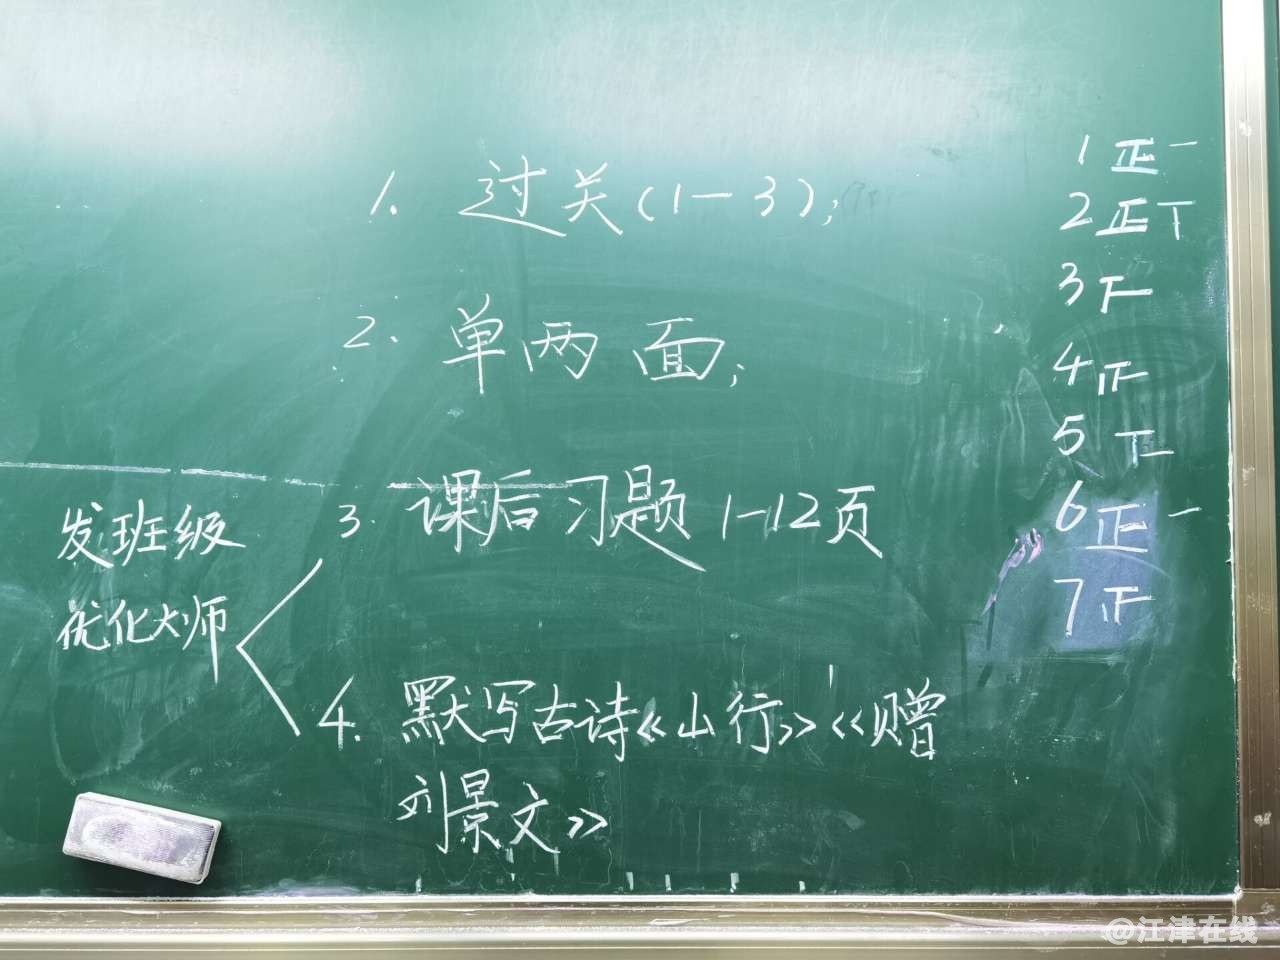 1. 过关(1-3);
2. 单两面;
3. 课后习题1-12页
发班级
优化大师
4. 默写古诗《山行》《赠
刘景文》
1 正一
2 正丅
3
4
5
6 正一
7
@江津在线